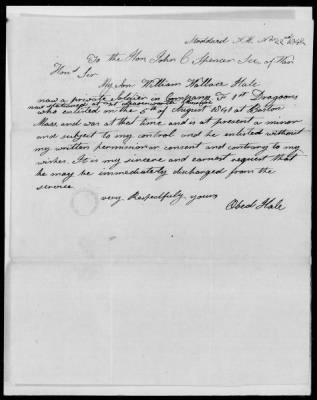 Stoddard N.H. 22nd 1842
To the Hon John C Spencer Sec of War
Hond Sir
My Son William Wallace Hale
now a private Soldier in Company 1st Dragoons
now stationed at
who enlisted on the 5th of August 1841 at Boston
Mass and was at that time and is at present a minor
and subject to my control and he enlisted without
my written permission or consent and contrary to my
wishes. It is my sincere and earnest request that
he may be immediately discharged from the
service
very Respectfully yours
Obed Hale